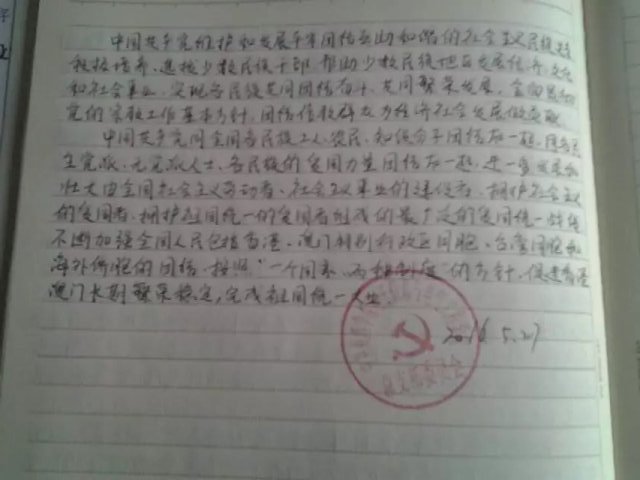 中国共产党维护和发展平等团结互助和谐的社会主义民族关系
积极培养、选拔少数民族干部，帮助少数民族地区发展经济、文化
和社会事业，实现各民族共同团结奋斗、共同繁荣发展，全面贯彻
党的宗教工作基本方针，团结信教群众为经济社会发展做贡献
中国共产党同全国各民族工人、农民、知识分子团结在一起，同各民
主党派、无党派人士、各民族的爱国力量团结在一起，进一步发展和
壮大由全国社会主义劳动者、社会主义事业的建设者、拥护社会主义
的爱国者、拥护祖国统一的爱国者组成的最广泛的爱国统一战线
不断加强全国人民包括香港、澳门特别行政区同胞、台湾同胞和
海外侨胞的团结。按照“一个国家、两种制度”的方针，促进香港
澳门长期繁荣稳定，完成祖国统一大业
2016.5.27